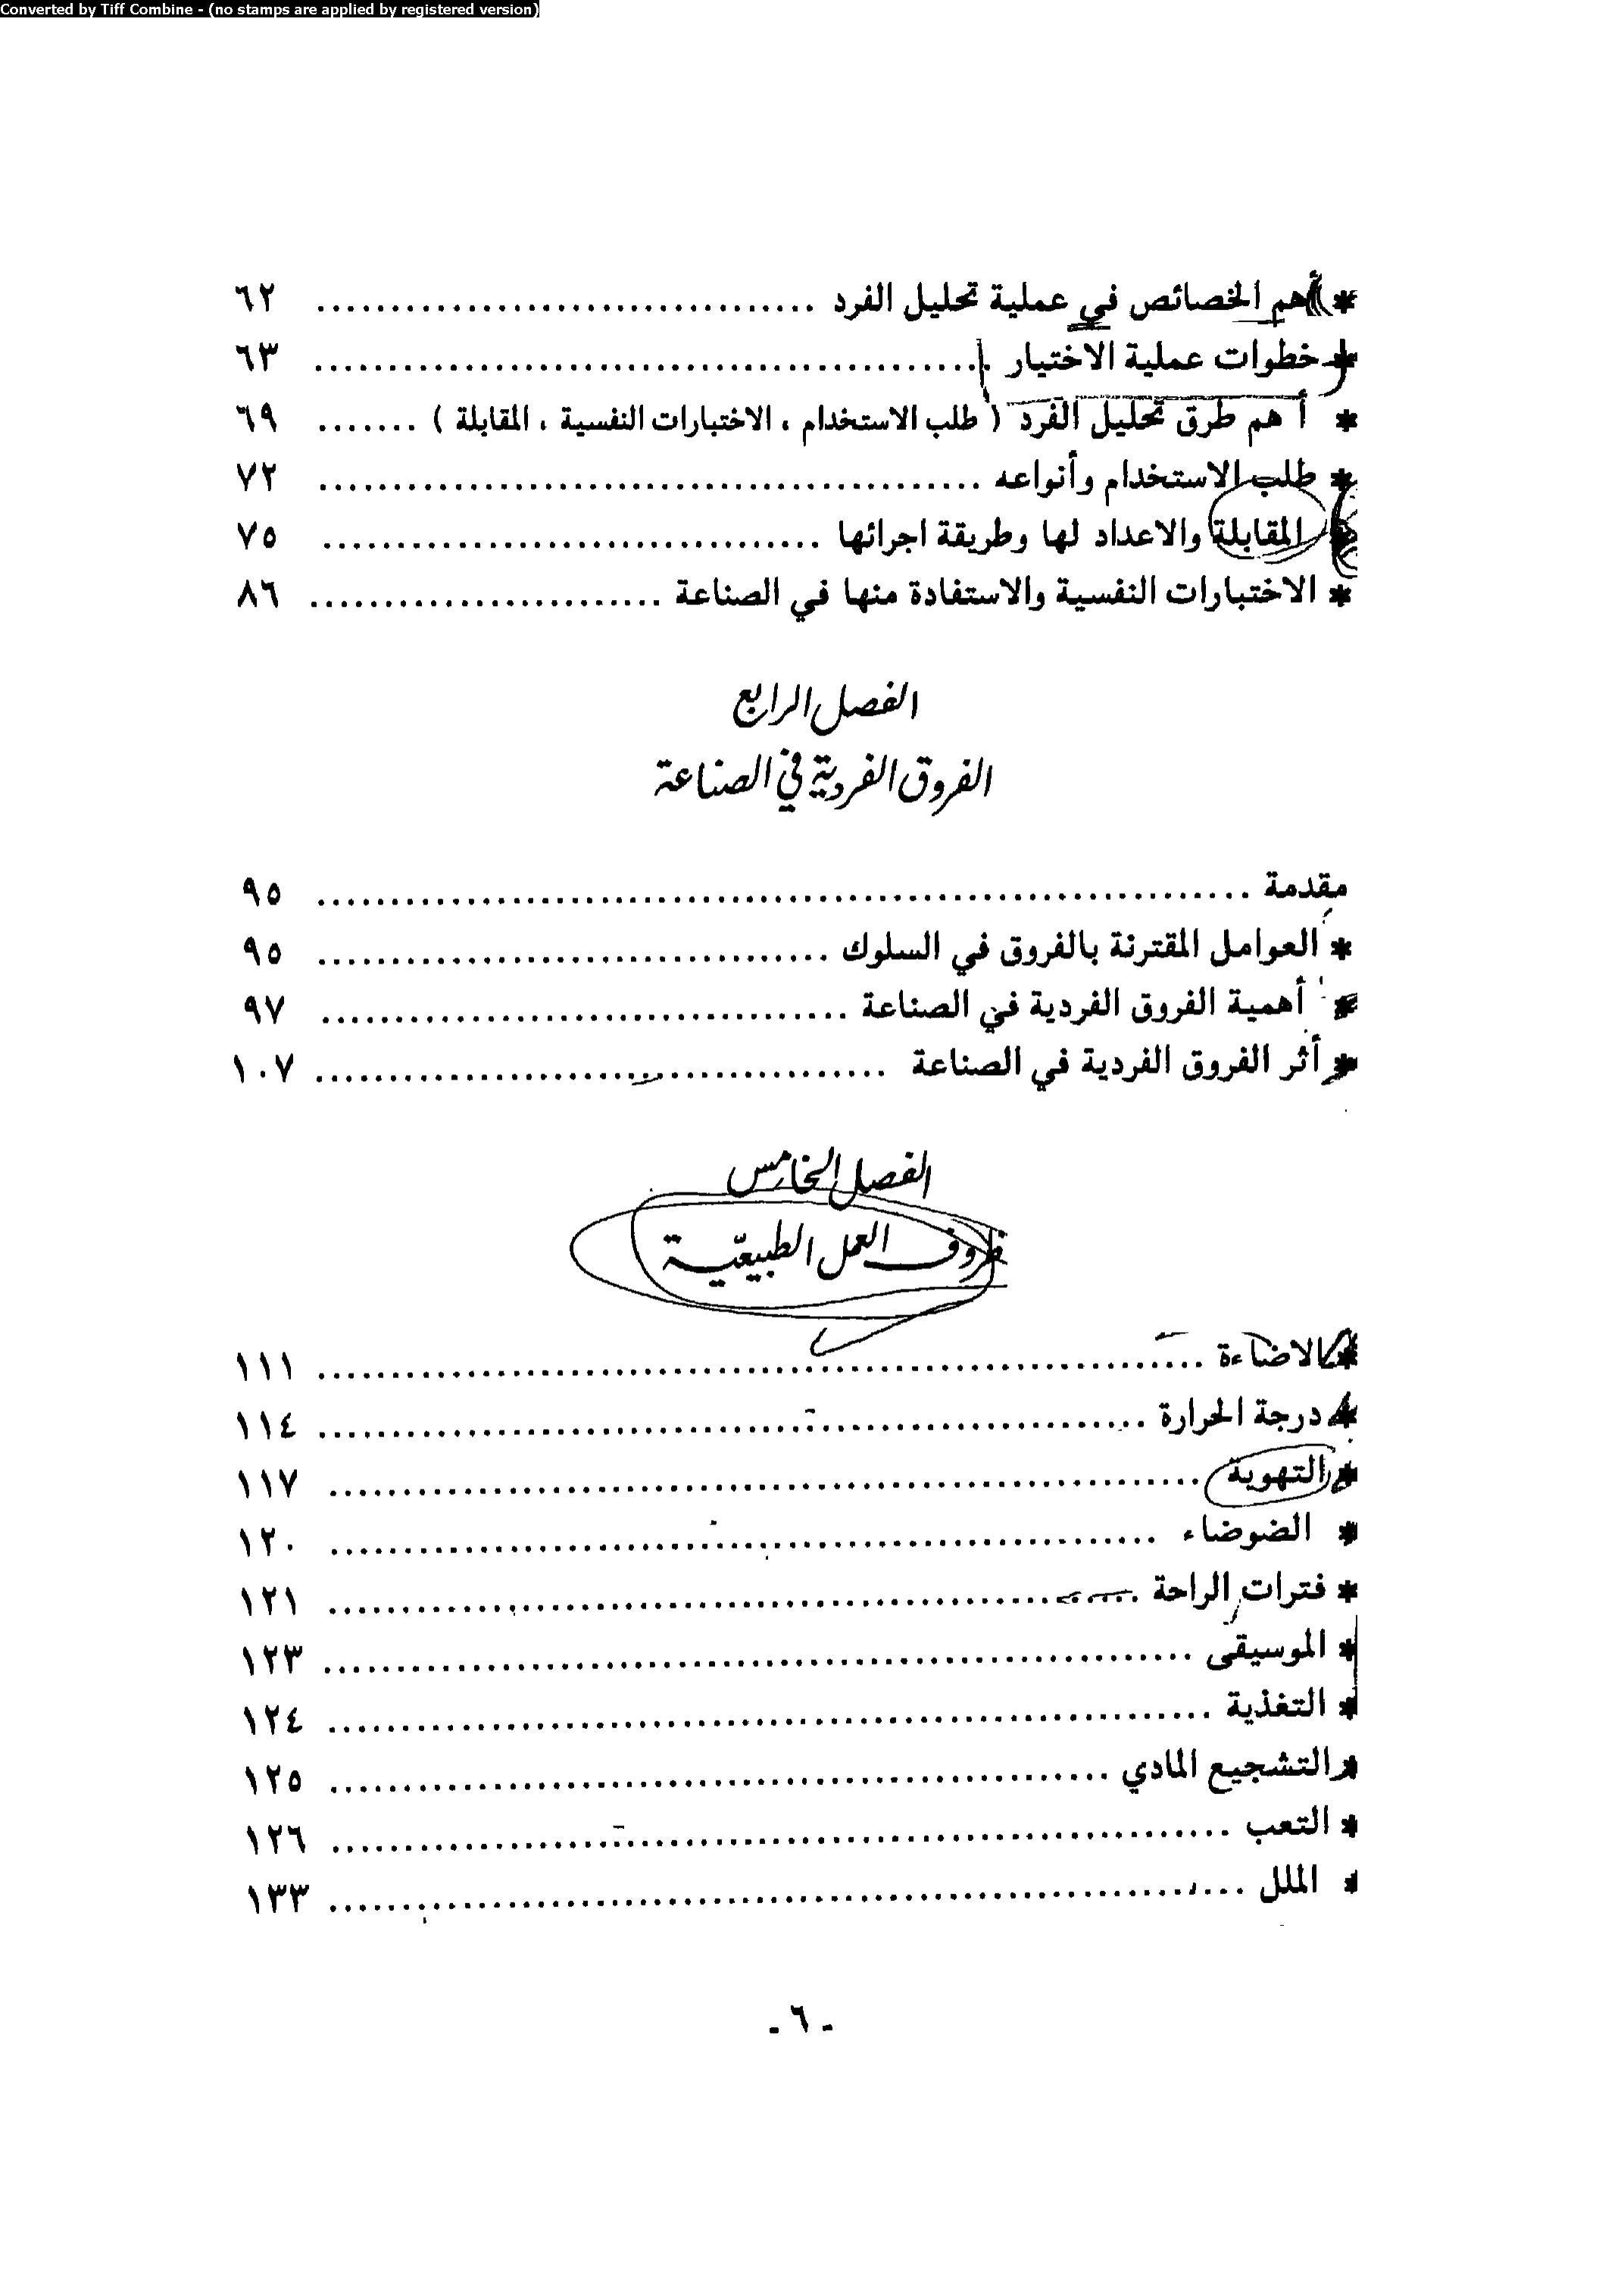 Converted by Tiff Combine - (no stamps are applied by registered version)
* أهم الخصائص في عملية تحليل الفرد ................................. ٦٢
* خطوات عملية الاختيار ............................................ ٦٣
* أهم طرق تحليل الفرد ( طلب الاستخدام ، الاختبارات النفسية ، المقابلة ) ....... ٦٩
* طلب الاستخدام وأنواعه ............................................ ٧٢
* المقابلة والاعداد لها وطريقة اجرائها ................................. ٧٥
* الاختبارات النفسية والاستفادة منها في الصناعة ........................ ٨٦
الفصل الرابع
الفروق الفردية في الصناعة
مقدمة .............................................................. ٩٥
* العوامل المقترنة بالفروق في السلوك .................................. ٩٥
* أهمية الفروق الفردية في الصناعة ................................... ٩٧
* أثر الفروق الفردية في الصناعة ...................................... ١٠٧
الفصل الخامس
ظروف العمل الطبيعية
* الاضاءة ........................................................... ١١١
* درجة الحرارة ....................................................... ١١٤
* التهوية .......................................................... ١١٧
* الضوضاء ....................................................... ١٢٠
* فترات الراحة ...................................................... ١٢١
* الموسيقى .......................................................... ١٢٣
* التغذية ........................................................... ١٢٤
* التشجيع المادي .................................................... ١٢٥
* التعب ............................................................ ١٢٦
* الملل ............................................................. ١٣٣
- ٦ -